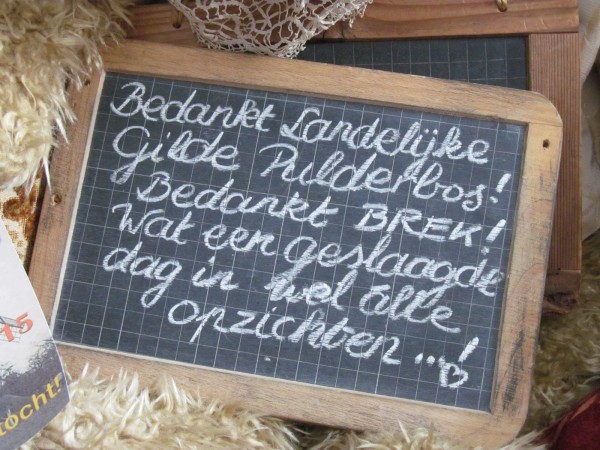 Bedankt Landelijke
Gilde Pulderbos!
Bedankt BREK!
Wat een geslaagde
dag in wel alle
opzichten...!
15
tocht!